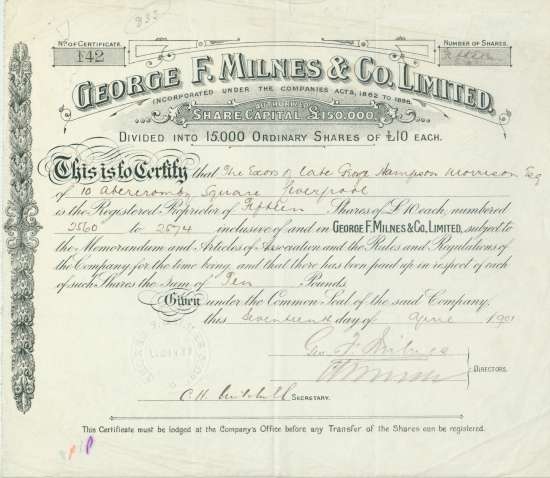 832
No. OF CERTIFICATE.
142
NUMBER OF SHARES.
Fifteen
GEORGE F. MILNES & CO. LIMITED.
INCORPORATED UNDER THE COMPANIES ACTS, 1862 TO 1898.
AUTHORISED
SHARE CAPITAL £150,000.
DIVIDED INTO 15,000 ORDINARY SHARES OF £10 EACH.
This is to Certify that The Exors of late George Hampson Morrison Esq
of 10 Abercromby Square Liverpool
is the Registered Proprietor of Fifteen Shares of £10 each, numbered
2560 to 2574 inclusive of and in GEORGE F. MILNES & CO., LIMITED, subject to
the Memorandum and Articles of Association and the Rules and Regulations of
the Company for the time being, and that there has been paid up in respect of each
of such Shares the sum of Ten Pounds.
Given under the Common Seal of the said Company,
this Seventeenth day of April 1901
Geo. F. Milnes
DIRECTORS.
C. H. Mitchell SECRETARY.
This Certificate must be lodged at the Company's Office before any Transfer of the Shares can be registered.